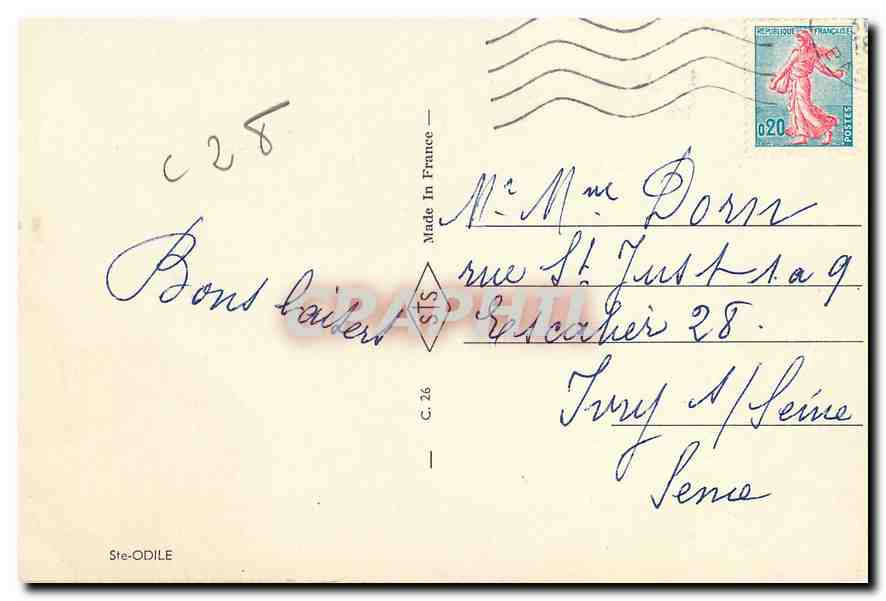 REPUBLIQUE FRANÇAISE
0,20
POSTES
C 28
Made In France
STS
C. 26
Mr Mme Dorn
rue St Just 1 a 9
Escalier 28.
Ivry s/Seine
Seine
Bons baisers
GRAPHTI
Ste-ODILE